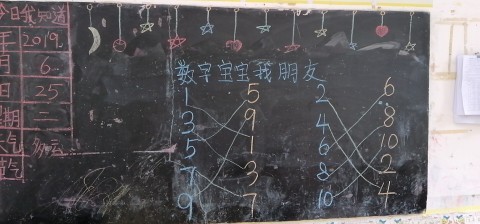 今日我知道
年 2019.
月 6
日 25
期 二
天气 多云
节气
数字宝宝找朋友
1 5 2 6
3 9 4 8
5 1 6 10
7 3 8 2
9 7 10 4